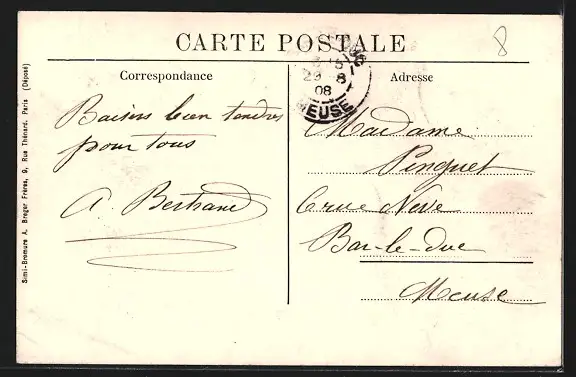 CARTE POSTALE
Correspondance
Baisers bien tendres
pour tous
A. Bertrand
Adresse
Madame
Pinguet
6 rue Neve
Bar-le-duc
Meuse
29 8
08
MEUSE
8
Simi-Bromure A. Breger Frères, 9, Rue Thénard, Paris (Déposé)